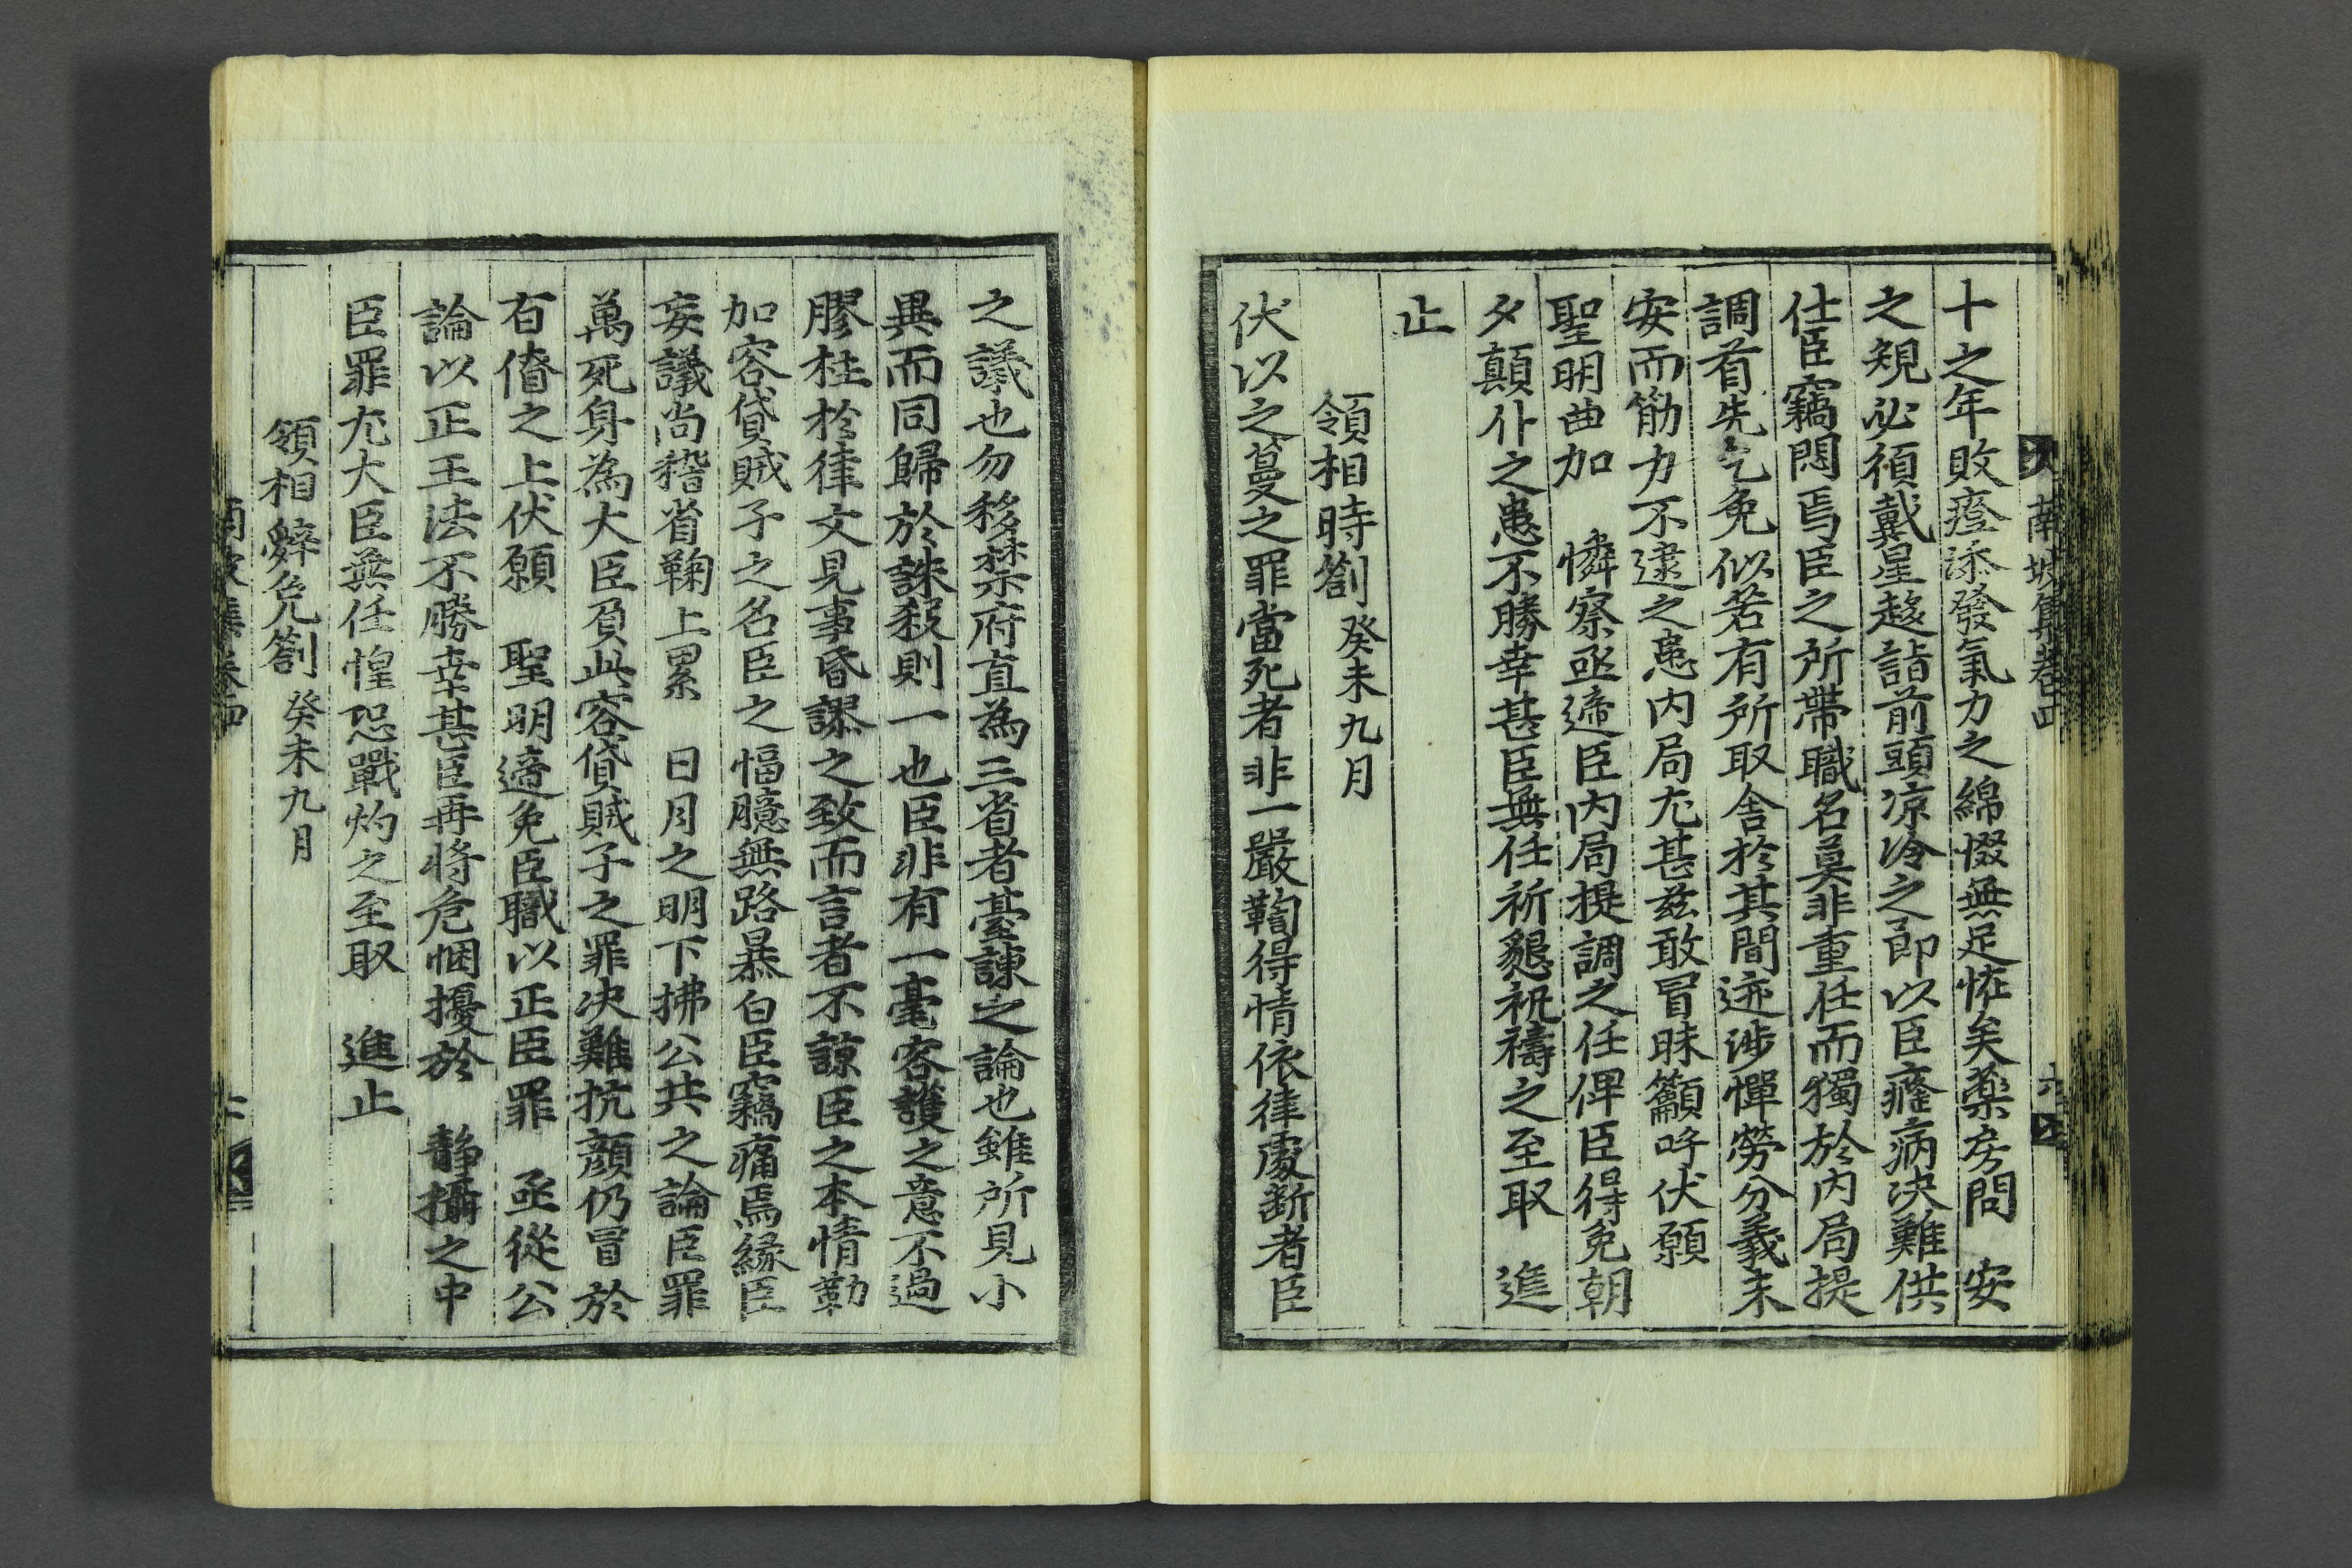 南坡集卷四
十之年敗瘂添發氣力之綿惙無足恠矣藥房問 安
之規必須戴星趍詣前頭凉冷之節以臣癃病决難供
仕臣竊悶焉臣之所帶職名莫非重任而獨於內局提
調首先乞免似若有所取舍於其間迹涉憚勞分義未
安而筋力不逮之患內局尤甚玆敢冒昧籲呼伏願
聖明曲加 憐察亟遞臣內局提調之任俾臣得免朝
夕顛仆之患不勝幸甚臣無任祈懇祝禱之至取 進
止
領相時劄 癸未九月
伏以之蔓之罪當死者非一嚴鞫得情依律處斷者臣
之議也勿移禁府直為三省者臺諫之論也雖所見小
異而同歸於誅殺則一也臣非有一毫容護之意不過
膠柱於律文見事昏謬之致而言者不諒臣之本情勒
加容貸賊子之名臣之愊臆無路暴白臣竊痛焉緣臣
妄議尚稽省鞠上累 日月之明下拂公共之論臣罪
萬死身為大臣負此容貸賊子之罪决難抗顔仍冒於
百僚之上伏願 聖明遞免臣職以正臣罪 亟從公
論以正王法不勝幸甚臣再將危悃擾於 靜攝之中
臣罪尤大臣無任惶恐戰灼之至取 進止
領相辭免劄 癸未九月